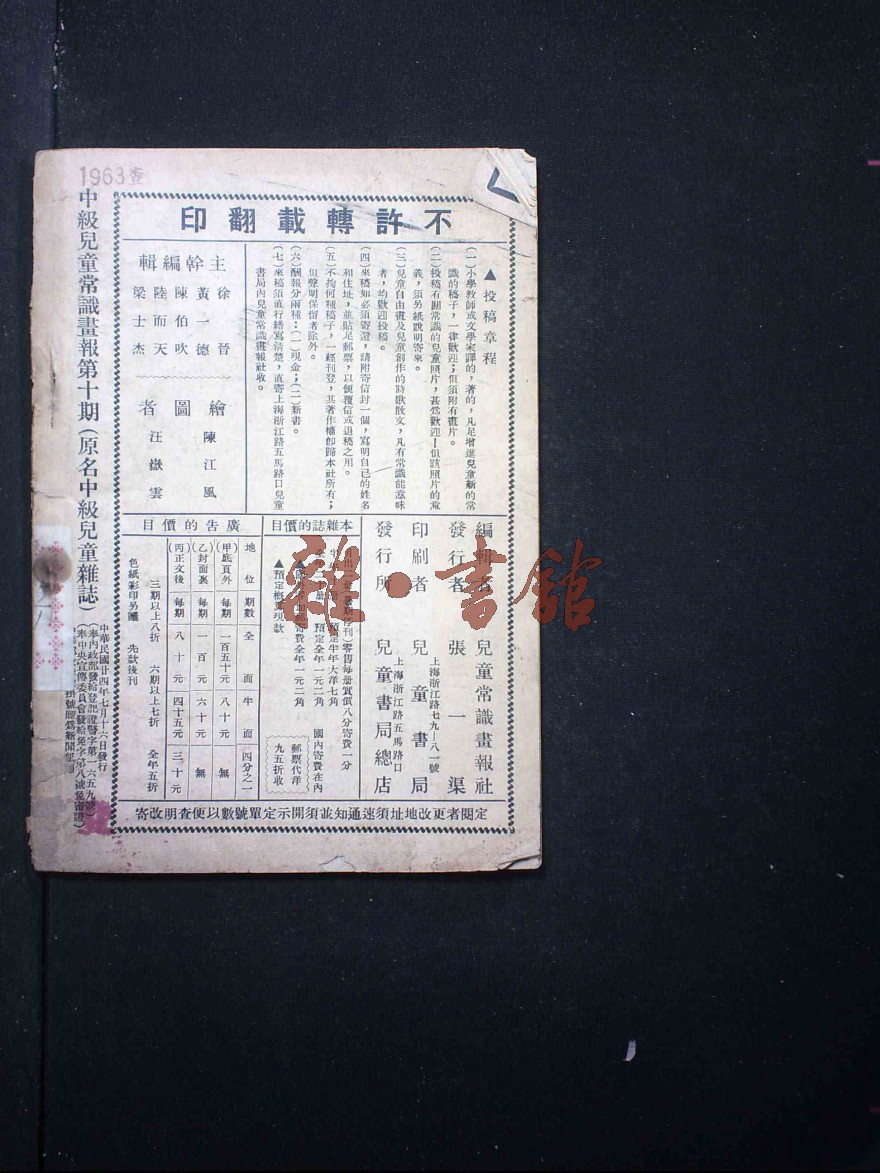 1963查
不許轉載翻印
▲投稿章程
(一)小學教師或文學家譯的，著的，凡足增進兒童新的常
識的稿子，一律歡迎；但須附有畫片。
(二)投稿有關常識的兒童照片，甚爲歡迎！但該照片的意
義，須另紙說明寄來。
(三)兒童自由畫及兒童創作的詩歌散文，凡有常識能意味
者，均歡迎投稿。
(四)來稿如必須寄還，請附寄信封一個，寫明自己的姓名
和住址，並貼足郵票，以便覆信或退稿之用。
(五)不拘何種稿子，一經刊登，其著作權卽歸本社所有；
但聲明保留者除外。
(六)酬報分兩種：(一)現金；(二)新書。
(七)來稿須直行繕寫清楚，直寄上海浙江路五馬路口兒童
書局內兒童常識畫報社收。
主幹編輯
徐晉
黃一德
陳伯吹
陸而天
梁士杰
繪圖者
陳江風
汪嶽雲
編輯者 兒童常識畫報社
發行者 張一渠
上海浙江路七九—八一號
印刷者 兒童書局
上海浙江路五馬路口
發行所 兒童書局總店
本雜誌的價目
零售每册實價八分寄費一分
預定半年大洋七角
預定全年一元二角
寄費全年一元二角
國內寄費在內
▲預定概 現款
郵票代洋
九五折收
廣告的價目
地位 期數 全面 半面 四分之一
(甲)底頁外 每期 一百五十元 八十元 無
(乙)封面裏 每期 一百元 六十元 無
(丙)正文後 每期 八十元 四十五元 三十元
三期以上八折 六期以上七折 全年五折
色紙彩印另議 先款後刊
定閱者更改地址須速通知並須開示定單號數以便查明改寄
中級兒童常識畫報第十期(原名中級兒童雜誌)
中華民國廿四年七月十六日發行
(奉內政部發給登記證警字第一六五九號)
(奉中央宣傳委員會發給免字第八號免審證)
掛號認爲新聞紙類
雜·書館